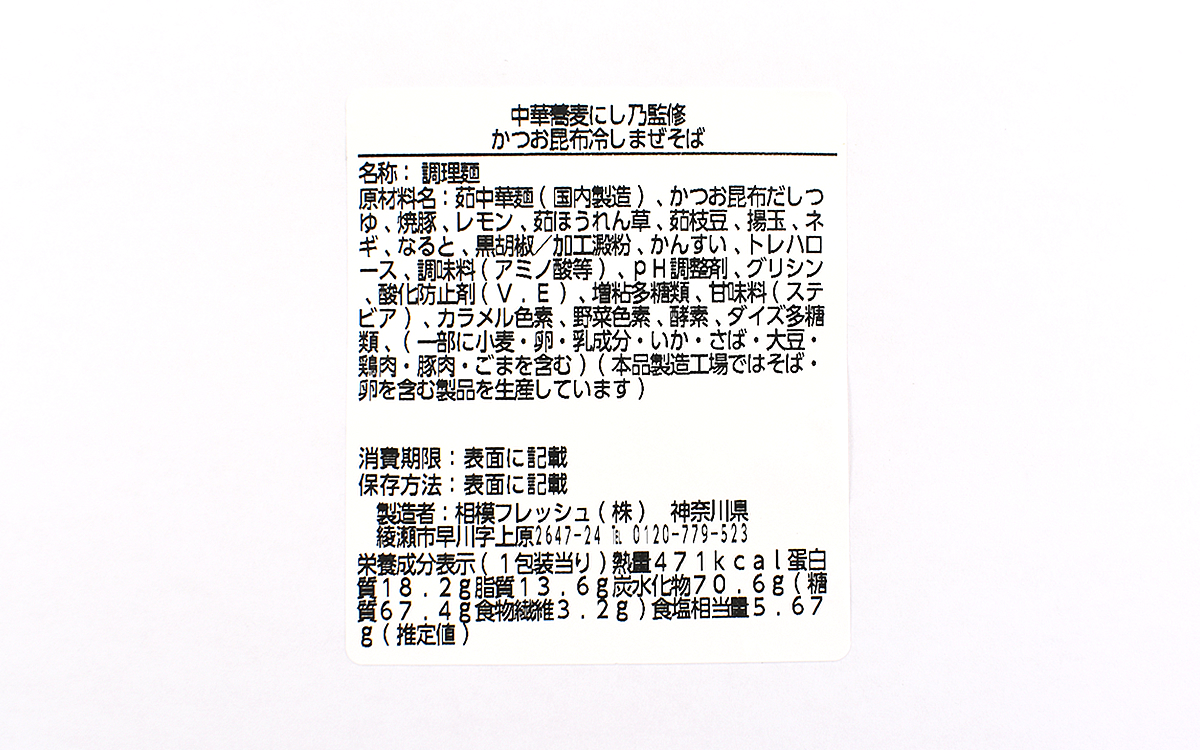 中華蕎麦にし乃監修
かつお昆布冷しまぜそば
名称：調理麺
原材料名：茹中華麺（国内製造）、かつお昆布だしつ
ゆ、焼豚、レモン、茹ほうれん草、茹枝豆、揚玉、ネ
ギ、なると、黒胡椒／加工澱粉、かんすい、トレハロ
ース、調味料（アミノ酸等）、ｐＨ調整剤、グリシン
、酸化防止剤（Ｖ．Ｅ）、増粘多糖類、甘味料（ステ
ビア）、カラメル色素、野菜色素、酵素、ダイズ多糖
類、（一部に小麦・卵・乳成分・いか・さば・大豆・
鶏肉・豚肉・ごまを含む）（本品製造工場ではそば・
卵を含む製品を生産しています）
消費期限：表面に記載
保存方法：表面に記載
製造者：相模フレッシュ（株）　神奈川県
綾瀬市早川字上原2647-24 ℡ 0120-779-523
栄養成分表示（１包装当り）熱量４７１ｋｃａｌ蛋白
質１８．２ｇ脂質１３．６ｇ炭水化物７０．６ｇ（糖
質６７．４ｇ食物繊維３．２ｇ）食塩相当量５．６７
ｇ（推定値）